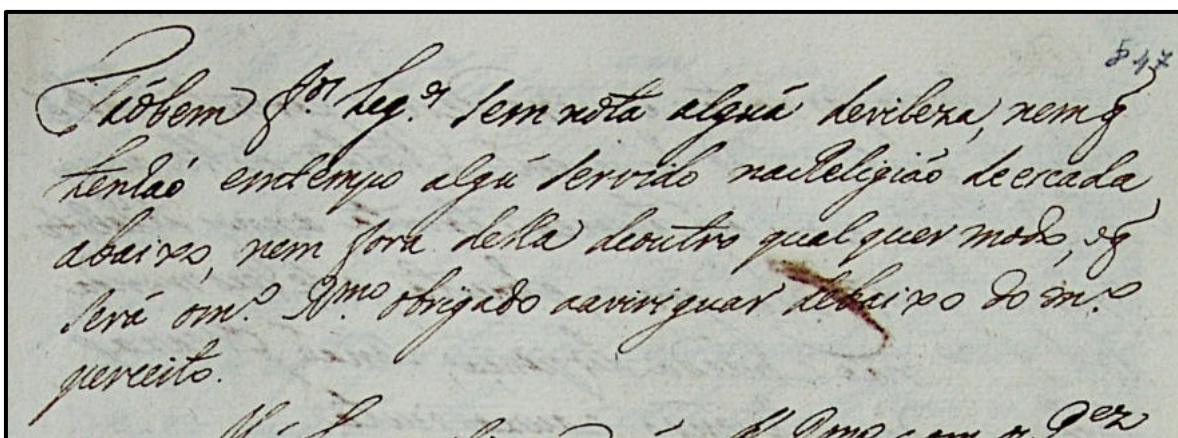 § 47
Tãobem f.ºs leg.ºs sem nota algũa devileza, nem q̃
tenhaõ emtempo algũ servido naReligiaõ deescada
abaixo, nem fora della deoutro qualquer modo, oq̃
será om.º R.mo obrigado aaviriguar debaixo do m.º
perceito.